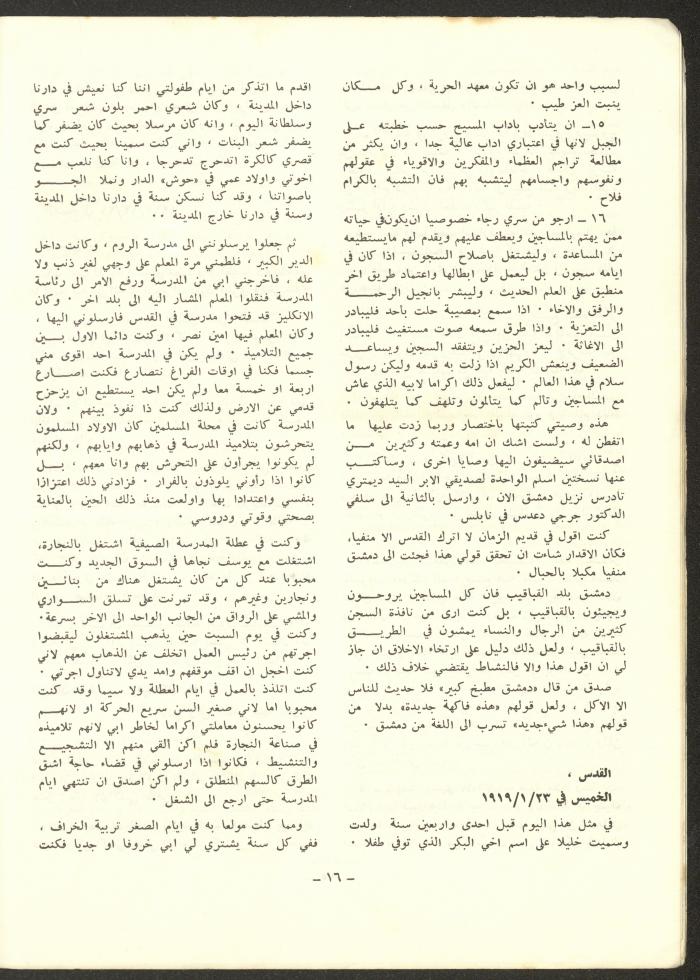 لسبب واحد هو ان تكون معهد الحرية ، وكل مـــكان
ينبت العز طيب ٠
١٥ــ ان يتأدب باداب المسيح حسب خطبته علـى
الجبل لانها في اعتباري اداب عالية جدا ، وان يكثر من
مطالعة تراجم العظماء والمفكرين والاقوياء في عقولهم
ونفوسهم واجسامهم ليتشبه بهم فان التشبه بالكرام
فلاح ٠
١٦ ــ ارجو من سري رجاء خصوصيا ان يكون في حياته
ممن يهتم بالمساجين ويعطف عليهم ويقدم لهم مايستطيعه
من المساعدة ، وليشتغل باصلاح السجون ، اذا كان في
ايامه سجون ، بل ليعمل على ابطالها واعتماد طريق اخر
منطبق على العلم الحديث ، وليبشر بانجيل الرحمـــة
والرفق والاخاء ٠ اذا سمع بمصيبة حلت بأحد فليبادر
الى التعزية ٠ واذا طرق سمعه صوت مستغيث فليبادر
الى الاغاثة ٠ ليعز الحزين ويتفقد السجين ويساعـــد
الضعيف وينعش الكريم اذا زلت به قدمه وليكن رسول
سلام في هذا العالم ٠ ليفعل ذلك اكراما لابيه الذي عاش
مع المساجين وتالم كما يتألمون وتلهف كما يتلهفون ٠
هذه وصيتي كتبتها باختصار وربما زدت عليها ما
اتفطن له ، ولست اشك ان امه وعمته وكثيرين مـــن
اصدقائي سيضيفون اليها وصايا اخرى ، وساكتـــب
عنها نسختين اسلم الواحدة لصديقي الابر السيد ديمتري
تادرس نزيل دمشق الان ، وارسل بالثانية الى سلفي
الدكتور جرجي دعدس في نابلس ٠
كنت اقول في قديم الزمان لا اترك القدس الا منفيا،
فكأن الاقدار شاءت ان تحقق قولي هذا فجئت الى دمشق
منفيا مكبلا بالحبال ٠
دمشق بلد القباقيب فان كل المساجين يروحـــون
ويجيئون بالقباقيب ، بل كنت ارى من نافذة السجن
كثيرين من الرجال والنساء يمشون في الطريـــق
بالقباقيب ، ولعل ذلك دليل على ارتخاء الاخلاق ان جاز
لي ان اقول هذا والا فالنشاط يقتضي خلاف ذلك ٠
صدق من قال «دمشق مطبخ كبير» فلا حديث للناس
الا الاكل ، ولعل قولهم «هذه فاكهة جديدة» بدلا من
قولهم «هذا شيء جديد» تسرب الى اللغة من دمشق ٠
القدس ،
الخميس في ١٩١٩/١/٢٣
في مثل هذا اليوم قبل احدى واربعين سنة ولدت
وسميت خليلا على اسم اخي البكر الذي توفي طفلا ٠
اقدم ما اتذكر من ايام طفولتي اننا كنا نعيش في دارنا
داخل المدينة ، وكان شعري احمر بلون شعر سري
وسلطانة اليوم ، وانه كان مرسلا بحيث كان يضفر كما
يضفر شعر البنات ، واني كنت سمينا بحيث كنت مع
قصري كالكرة اتدحرج تدحرجا ، وانا كنا نلعب مـــع
اخوتي واولاد عمي في «حوش» الدار ونملا الجـــو
باصواتنا ، وقد كنا نسكن سنة في دارنا داخل المدينة
وسنة في دارنا خارج المدينة ٠٠
ثم جعلوا يرسلونني الى مدرسة الروم ، وكانت داخل
الدير الكبير ، فلطمني مرة المعلم على وجهي لغير ذنب ولا
عله ، فاخرجني ابي من المدرسة ورفع الامر الى رئاسة
المدرسة فنقلوا المعلم المشار اليه الى بلد اخر ٠ وكان
الانكليز قد فتحوا مدرسة في القدس فارسلوني اليها ،
وكان المعلم فيها امين نصر ، وكنت دائما الاول بـــين
جميع التلاميذ ٠ ولم يكن في المدرسة احد اقوى مني
جسما فكنا في اوقات الفراغ نتصارع فكنت اصـــارع
اربعة او خمسة معا ولم يكن احد يستطيع ان يزحزح
قدمي عن الارض ولذلك كنت ذا نفوذ بينهم ٠ ولان
المدرسة كانت في محلة المسلمين كان الاولاد المسلمون
يتحرشون بتلاميذ المدرسة في ذهابهم وايابهم ، ولكنهم
لم يكونوا يجرأون على التحرش بهم وانا معهم ، بـــل
كانوا اذا رأوني يلوذون بالفرار ٠ فزادني ذلك اعتزازا
بنفسي واعتدادا بها واولعت منذ ذلك الحين بالعناية
بصحتي وقوتي ودروسي ٠
وكنت في عطلة المدرسة الصيفية اشتغل بالنجارة،
اشتغلت مع يوسف نجاها في السوق الجديد وكنـــت
محبوبا عند كل من كان يشتغل هناك من بنائـــين
ونجارين وغيرهم ، وقد تمرنت على تسلق الســـواري
والمشي على الرواق من الجانب الواحد الى الاخر بسرعة٠
وكنت في يوم السبت حين يذهب المشتغلون ليقبضوا
اجرتهم من رئيس العمل اتخلف عن الذهاب معهم لاني
كنت اخجل ان اقف موقفهم وامد يدي لاتناول اجرتي ٠
كنت اتلذذ بالعمل في ايام العطلة ولا سيما وقد كنت
محبوبا اما لاني صغير السن سريع الحركة او لانهـــم
كانوا يحسنون معاملتي اكراما لخاطر ابي لانهم تلاميذه
في صناعة النجارة فلم اكن ألقى منهم الا التشجيـــع
والتنشيط ، فكانوا اذا ارسلوني في قضاء حاجة اشق
الطرق كالسهم المنطلق ، ولم اكن اصدق ان تنتهي ايام
المدرسة حتى ارجع الى الشغل ٠
ومما كنت مولعا به في ايام الصغر تربية الخراف ،
ففي كل سنة يشتري لي ابي خروفا او جديا فكنت
– ١٦ –